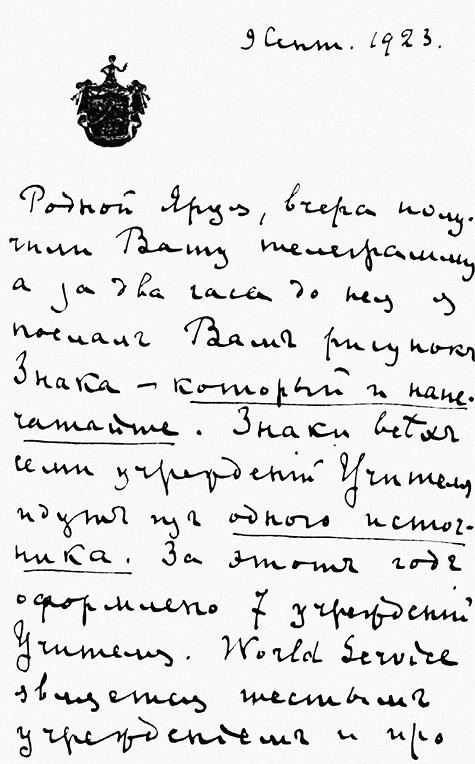 9 Сент. 1923.
Родной Яруя, вчера полу-
чили Вашу телеграмму
а за два часа до нея я
послалъ Вамъ рисунокъ
Знака – который и напе-
чатайте. Знаки всѣхъ
семи учрежденій Учителя
идутъ изъ одного источ-
ника. За этотъ годъ
оформлено 7 учрежденій
Учителя. World Service
является шестымъ
учрежденіемъ и про